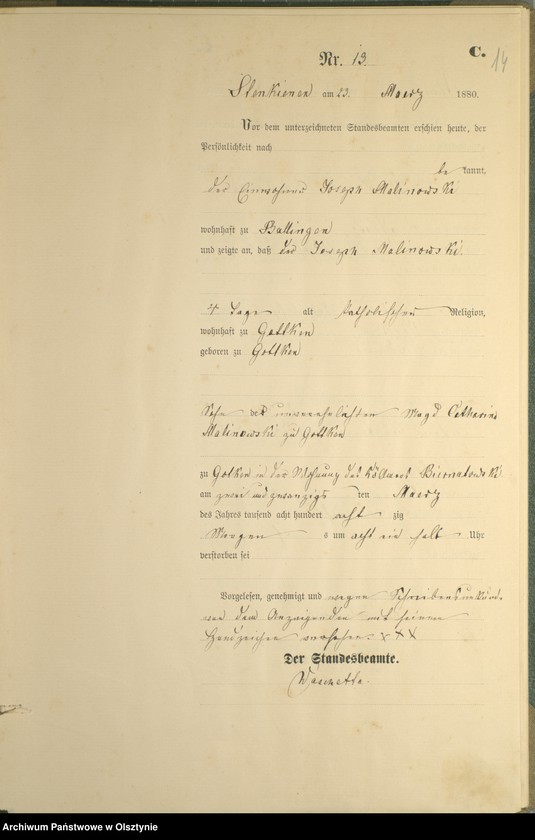 C.
14
Nr. 13.
Stenkienen am 23. Maerz 1880.
Vor dem unterzeichneten Standesbeamten erschien heute, der
Persönlichkeit nach
be kannt,
der Einwohner Joseph Malinowski
wohnhaft zu Ballingen
und zeigte an, daß der Joseph Malinowski
4 Tage alt katholischer Religion,
wohnhaft zu Gottken
geboren zu Gottken
Sohn der unverehelichten Magd Catharina
Malinowski zu Gottken
zu Gottken in der Wohnung des Biernatowski
am zwei und zwanzigs ten Maerz
des Jahres tausend acht hundert acht zig
Morgen s um acht ein halb Uhr
verstorben sei
Vorgelesen, genehmigt und wegen Schreibensunkunde
von dem Anzeigenden mit seinem
Handzeichen versehen. XXX
Der Standesbeamte.